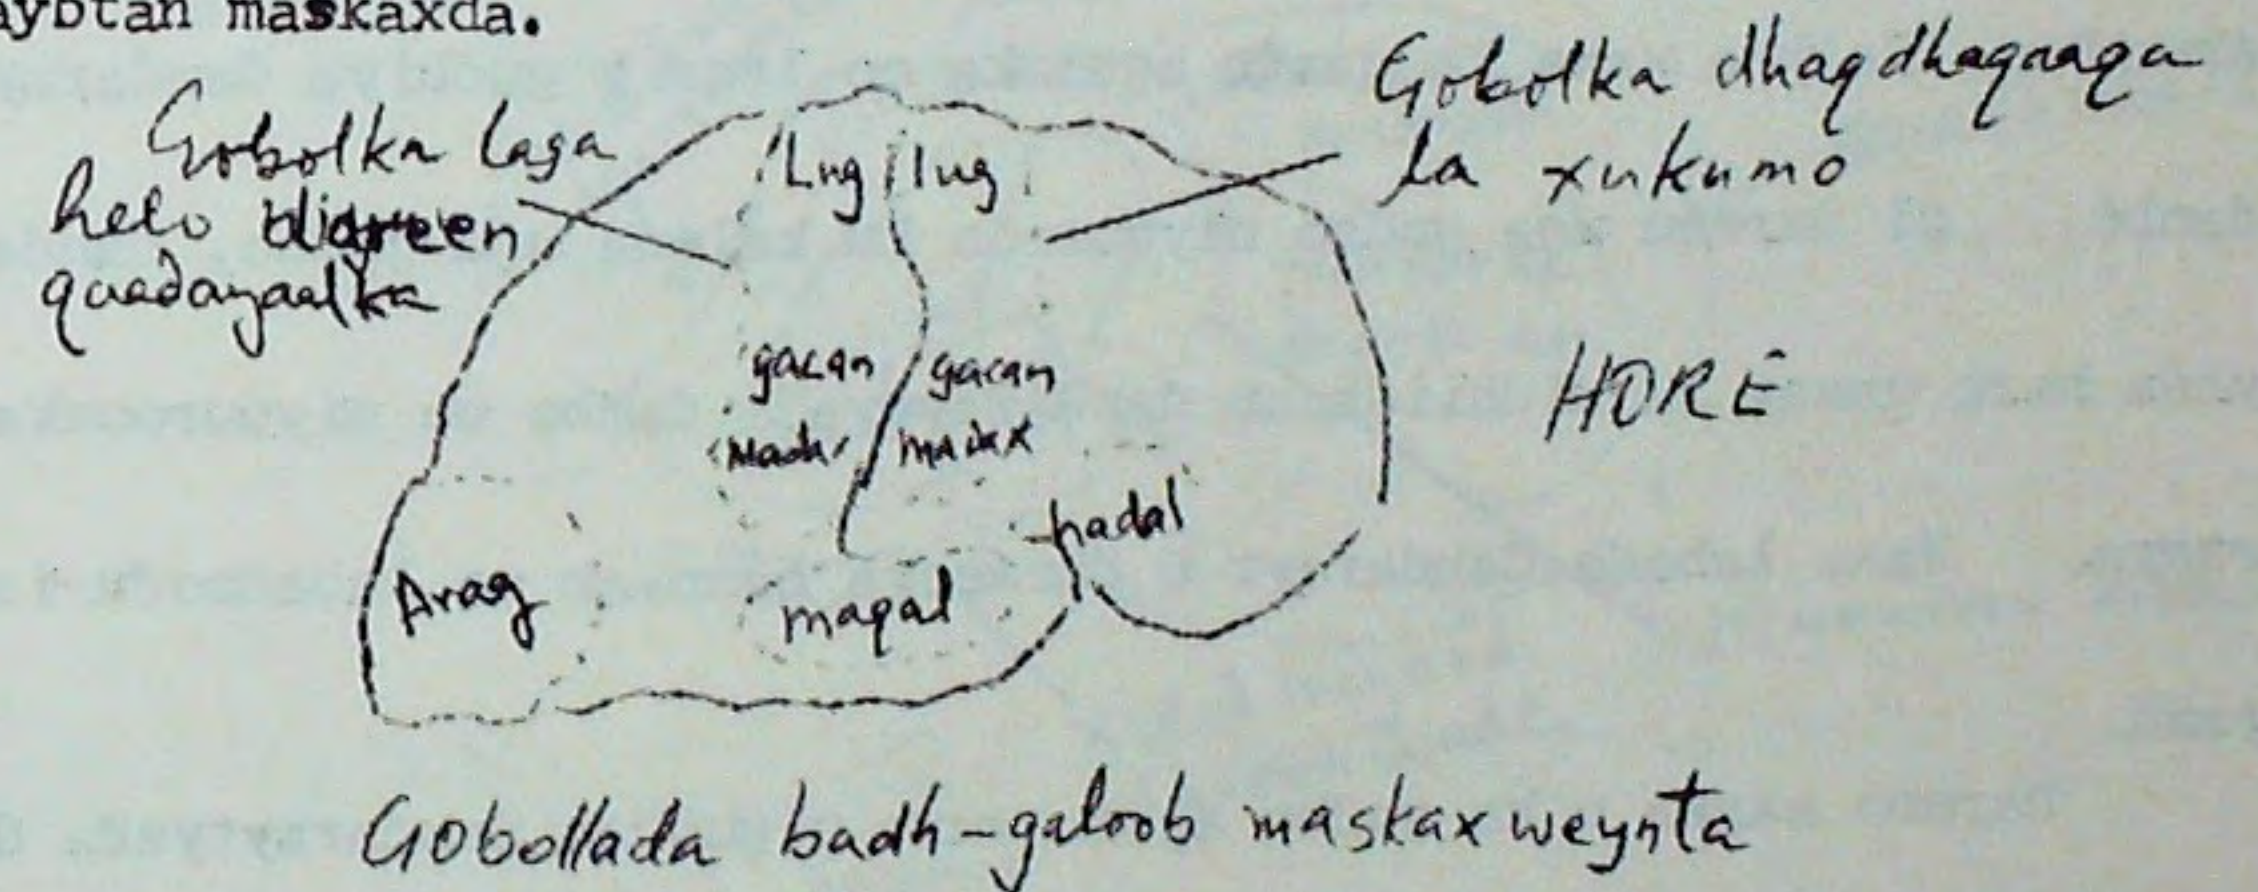 maskaxda.
Gobolka laga
helo
qaadayaalka
Gobolka dhaqdhaqaaqa
la xukumo
Lug lug
gacan gacan
madax
hadal
HORE
Arag
maqal
Gobollada badh-galoob maskaxweynta